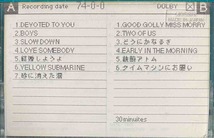 A Recording date 74-0-0 DOLBY B
1.DEVOTED TO YOU
2.BOYS
3.SLOW DOWN
4.LOVE SOMEBODY
5.結婚しようよ
6.YELLOW SUBMARINE
7.砂に消えた涙
1.GOOD GOLLY MISS MORRY
2.TWO OF US
3.どうにかなるさ
4.EARLY IN THE MORNING
5.鉄腕アトム
6.タイムマシンにお願い
30minuites